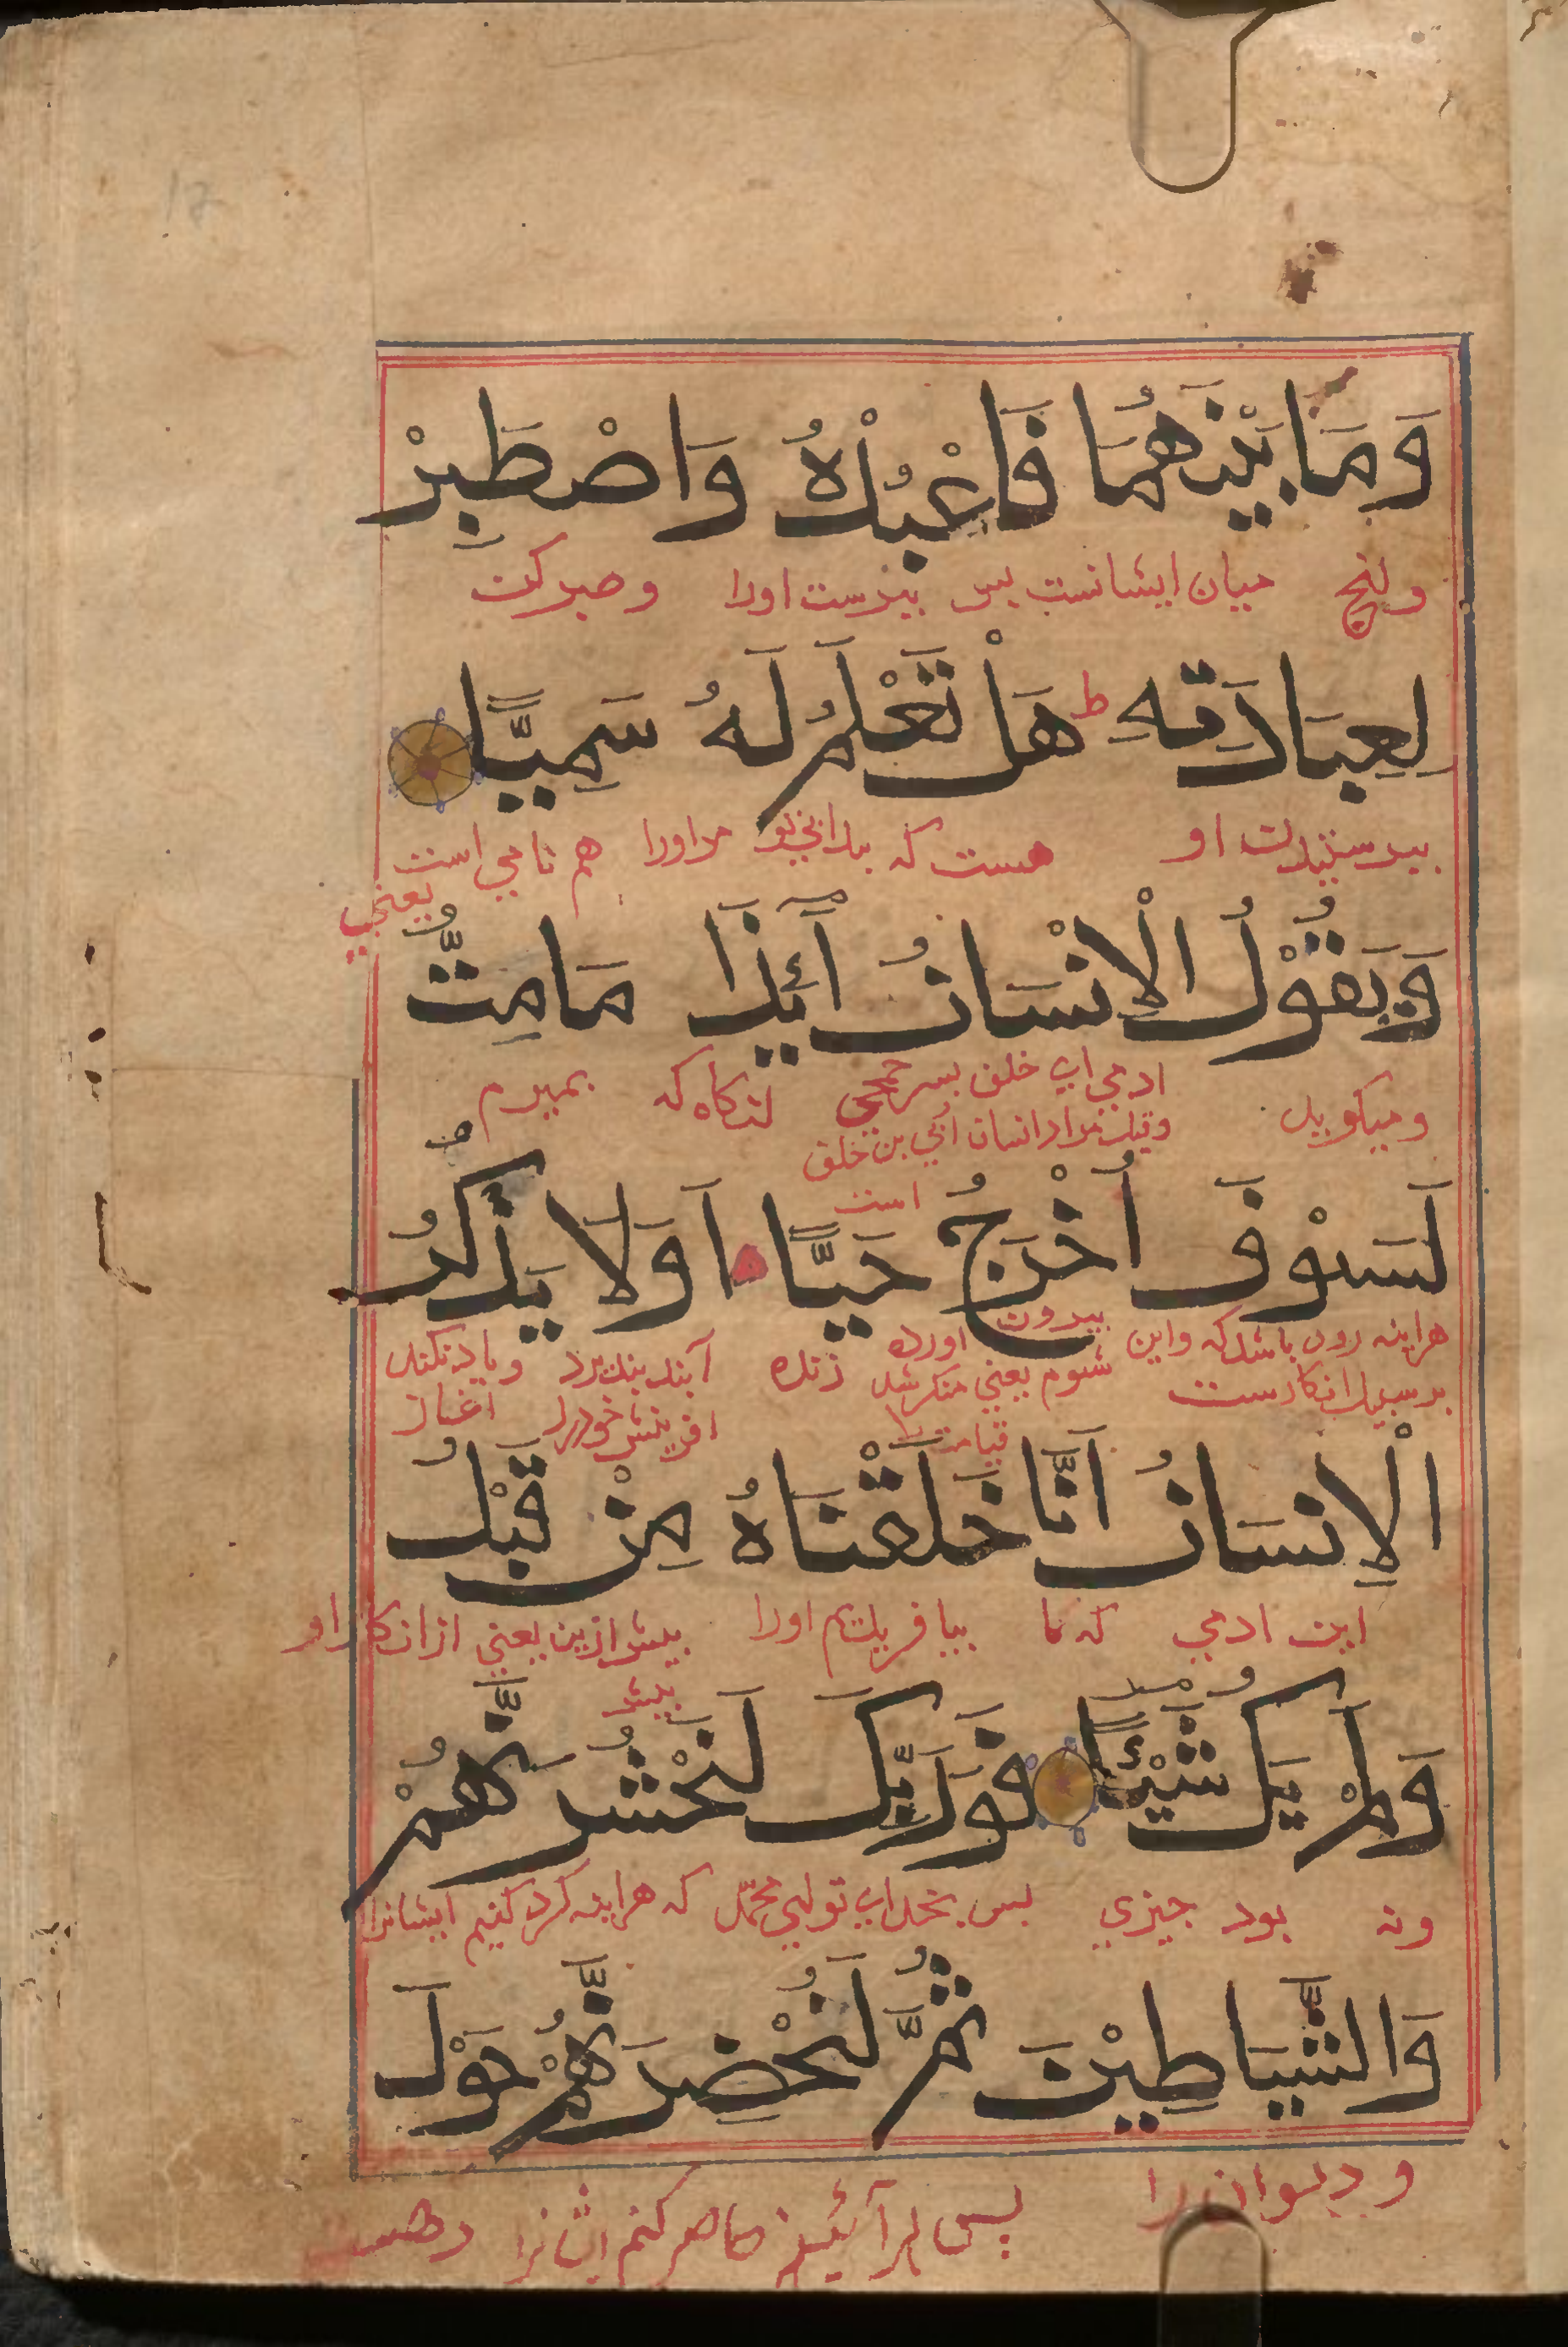 وَمَا بَيْنَهُمَا فَاعْبُدْهُ وَاصْطَبِرْ
میان ایشانست پس بپرست اورا وصبر کن
لِعِبَادَتِهِ ط هَلْ تَعْلَمُ لَهُ سَمِيًّا
بپرستیدن او هست که بدانی تو مراورا هم نامی است
یعنی
وَيَقُوْلُ الْاِنْسَانُ أَئِذَا مَا مِتُّ
ومیکوید ادمی ابی خلف بسر جمحی انکاه که بمیرم
وقیل مراد انسان أبي بن خلف
است
لَسَوْفَ اُخْرَجُ حَيًّا اَوَلَا يَذْكُرُ
هراینه زود باشد که واین بیرون اورده زنده آیند بنکرد ویاد نکند
بر سبیل انکارست شوم یعنی منکر شد افرینش خودرا اغاز
قیامت را
الْاِنْسَانُ اَنَّا خَلَقْنَاهُ مِنْ قَبْلُ
این ادمی که ما بیافریدیم اورا پیش ازین یعنی ازان کار او
پیش
وَلَمْ يَكُ شَيْئًا فَوَرَبِّكَ لَنَحْشُرَنَّهُمْ
ونه بود چیزی پس بخدای تو ای محمّد که هراینه کرد کنیم ایشانرا
وَالشَّيَاطِيْنَ ثُمَّ لَنُحْضِرَنَّهُمْ حَوْلَ
و دیوان را
پس هرآئینه حاضر کنم ایشانرا